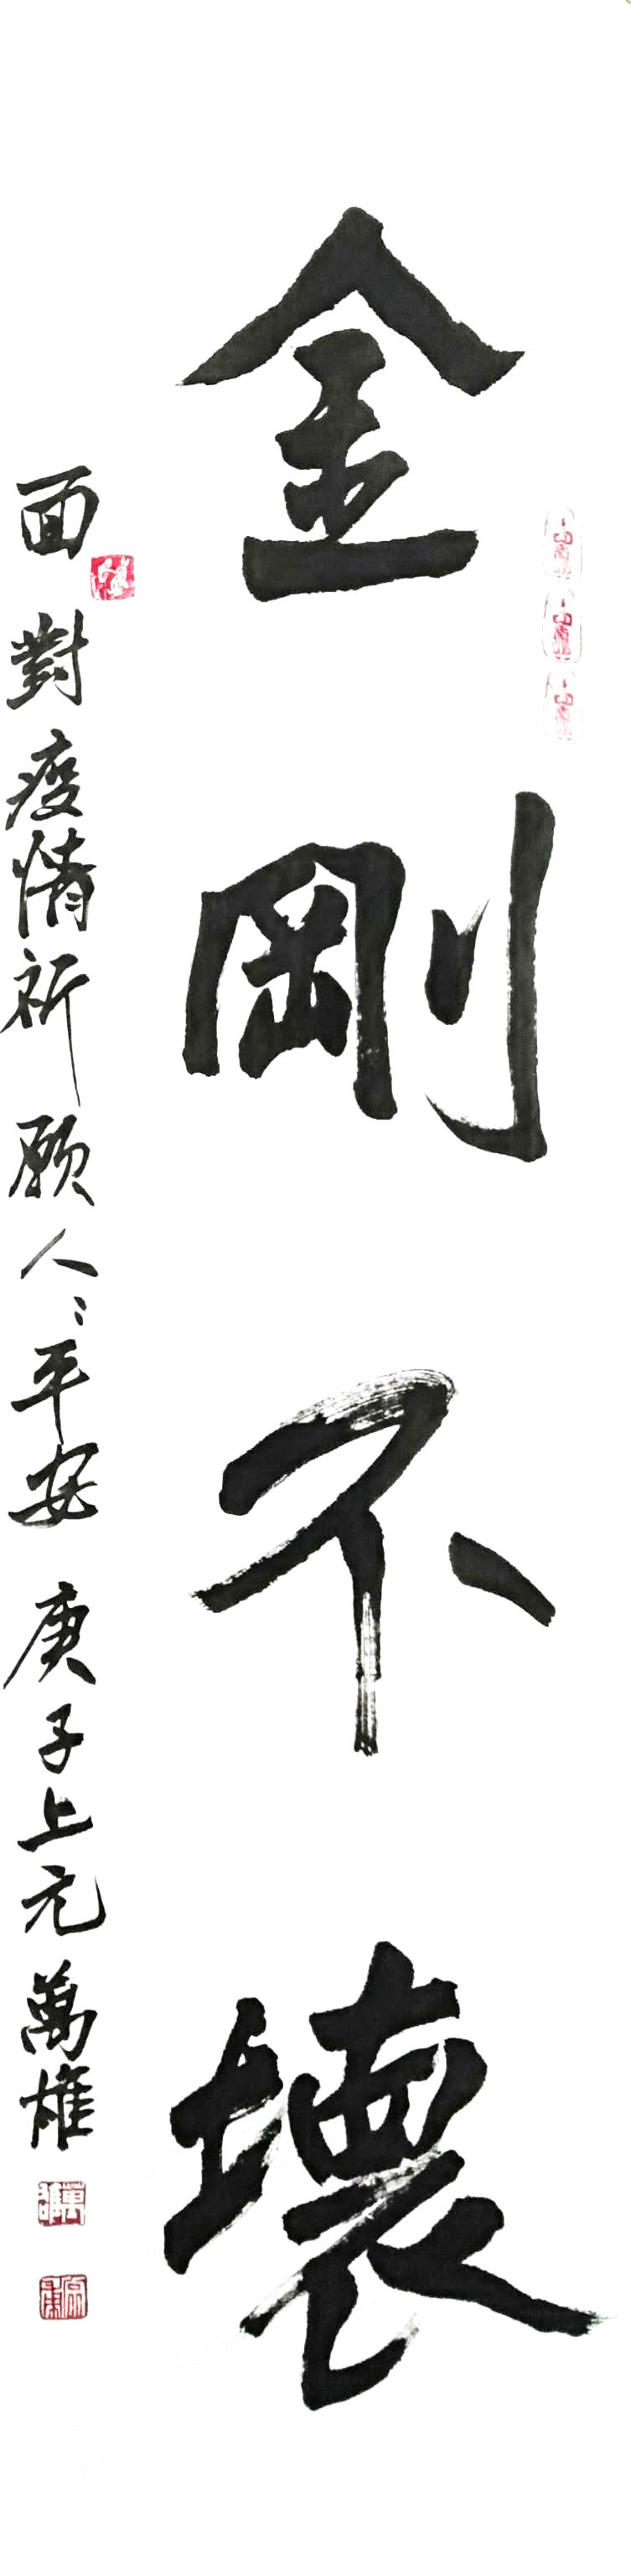 金剛不壞
面對疫情祈願人〻平安 庚子上元 萬雄
萬雄